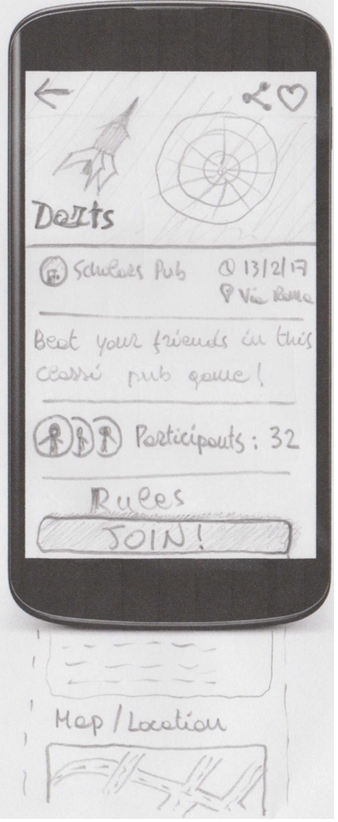 Darts
Scholars Pub
13/2/17
Via Roma
Beat your friends in this
classi pub game!
Participants: 32
Rules
JOIN!
Map/Location